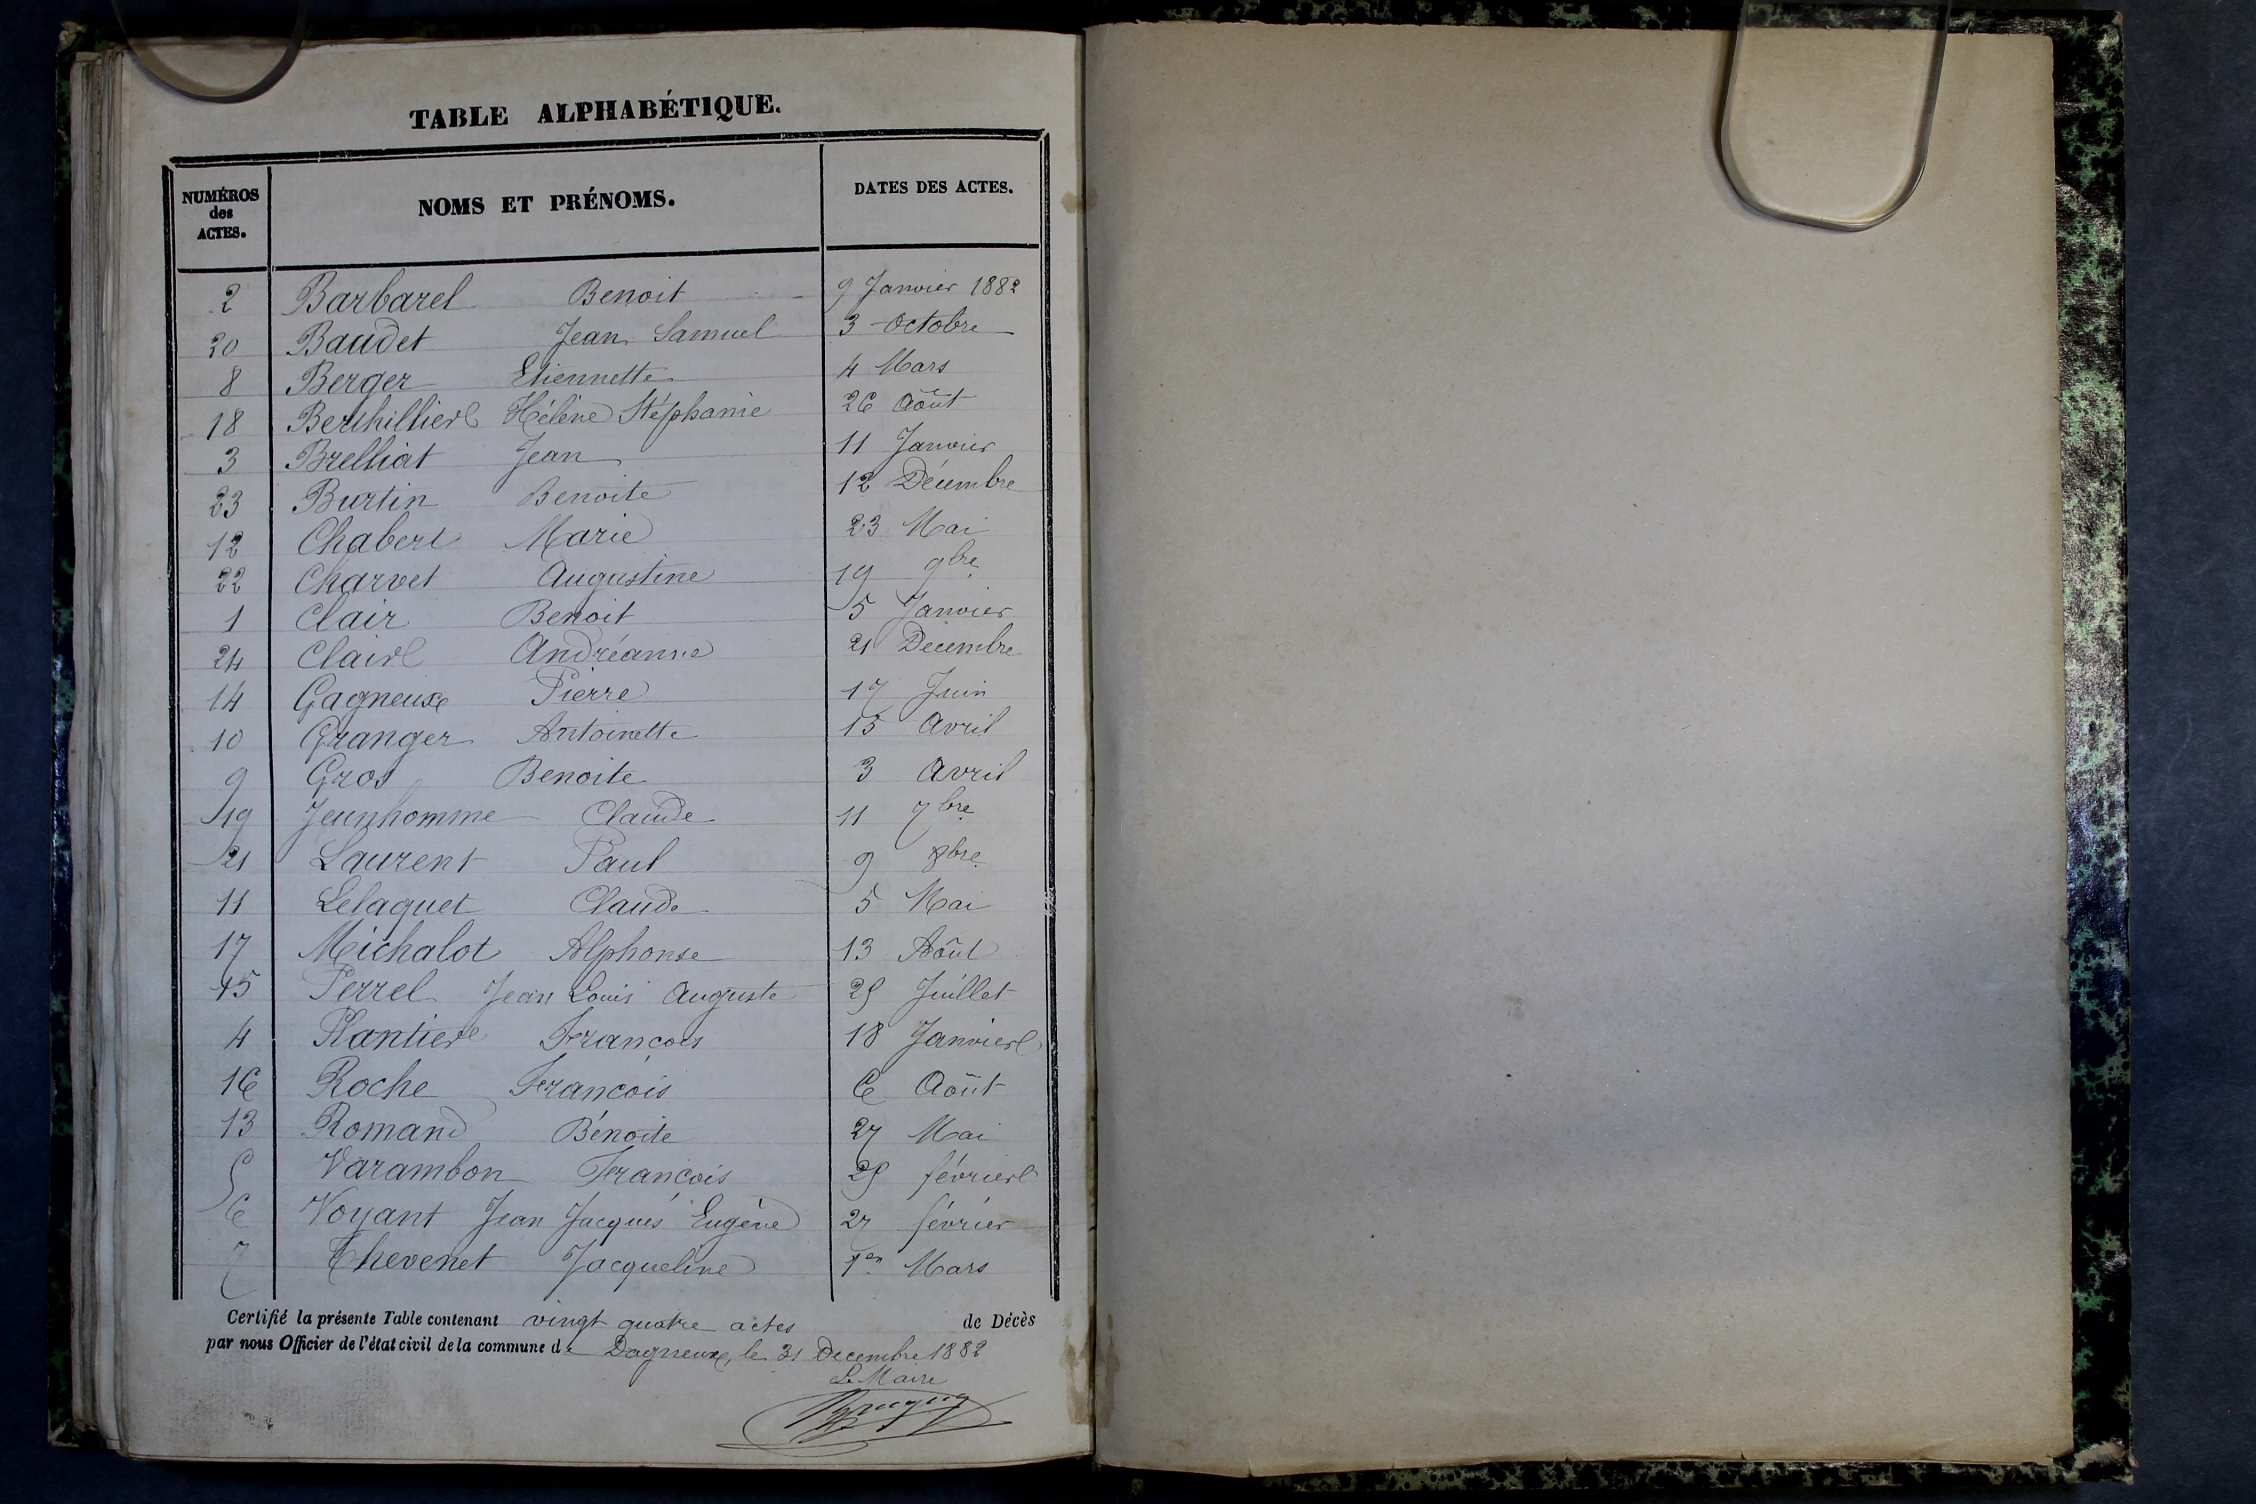 TABLE ALPHABÉTIQUE.
NUMÉROS des ACTES. NOMS ET PRÉNOMS. DATES DES ACTES.
2 Barbarel Benoit 9 Janvier 1882
20 Baudet Jean Samuel 3 Octobre
8 Berger Etiennette 4 Mars
18 Berthillier Hélène Stéphanie 26 Août
3 Brelliat Jean 11 Janvier
23 Burtin Benoite 12 Décembre
12 Chabert Marie 23 Mai
22 Charvet Augustine 19 9bre
1 Clair Benoit 5 Janvier
24 Clair Andréanne 21 Décembre
14 Gagneux Pierre 17 Juin
10 Granger Antoinette 15 Avril
9 Gros Benoite 3 Avril
19 Jeunhomme Claude 11 7bre
21 Laurent Paul 9 8bre
11 Lelaquet Claude 5 Mai
17 Michalot Alphonse 13 Août
15 Perrel Jean Louis Auguste 25 Juillet
4 Plantier François 18 Janvier
16 Roche François 6 Août
13 Romand Bénoite 27 Mai
5 Varambon François 25 février
6 Voyant Jean Jacques Eugène 27 février
7 Thevenet Jacqueline 1er Mars
Certifié la présente Table contenant vingt quatre actes de Décès
par nous Officier de l'état civil de la commune de Dagneux, le 31 Decembre 1882
Le Maire